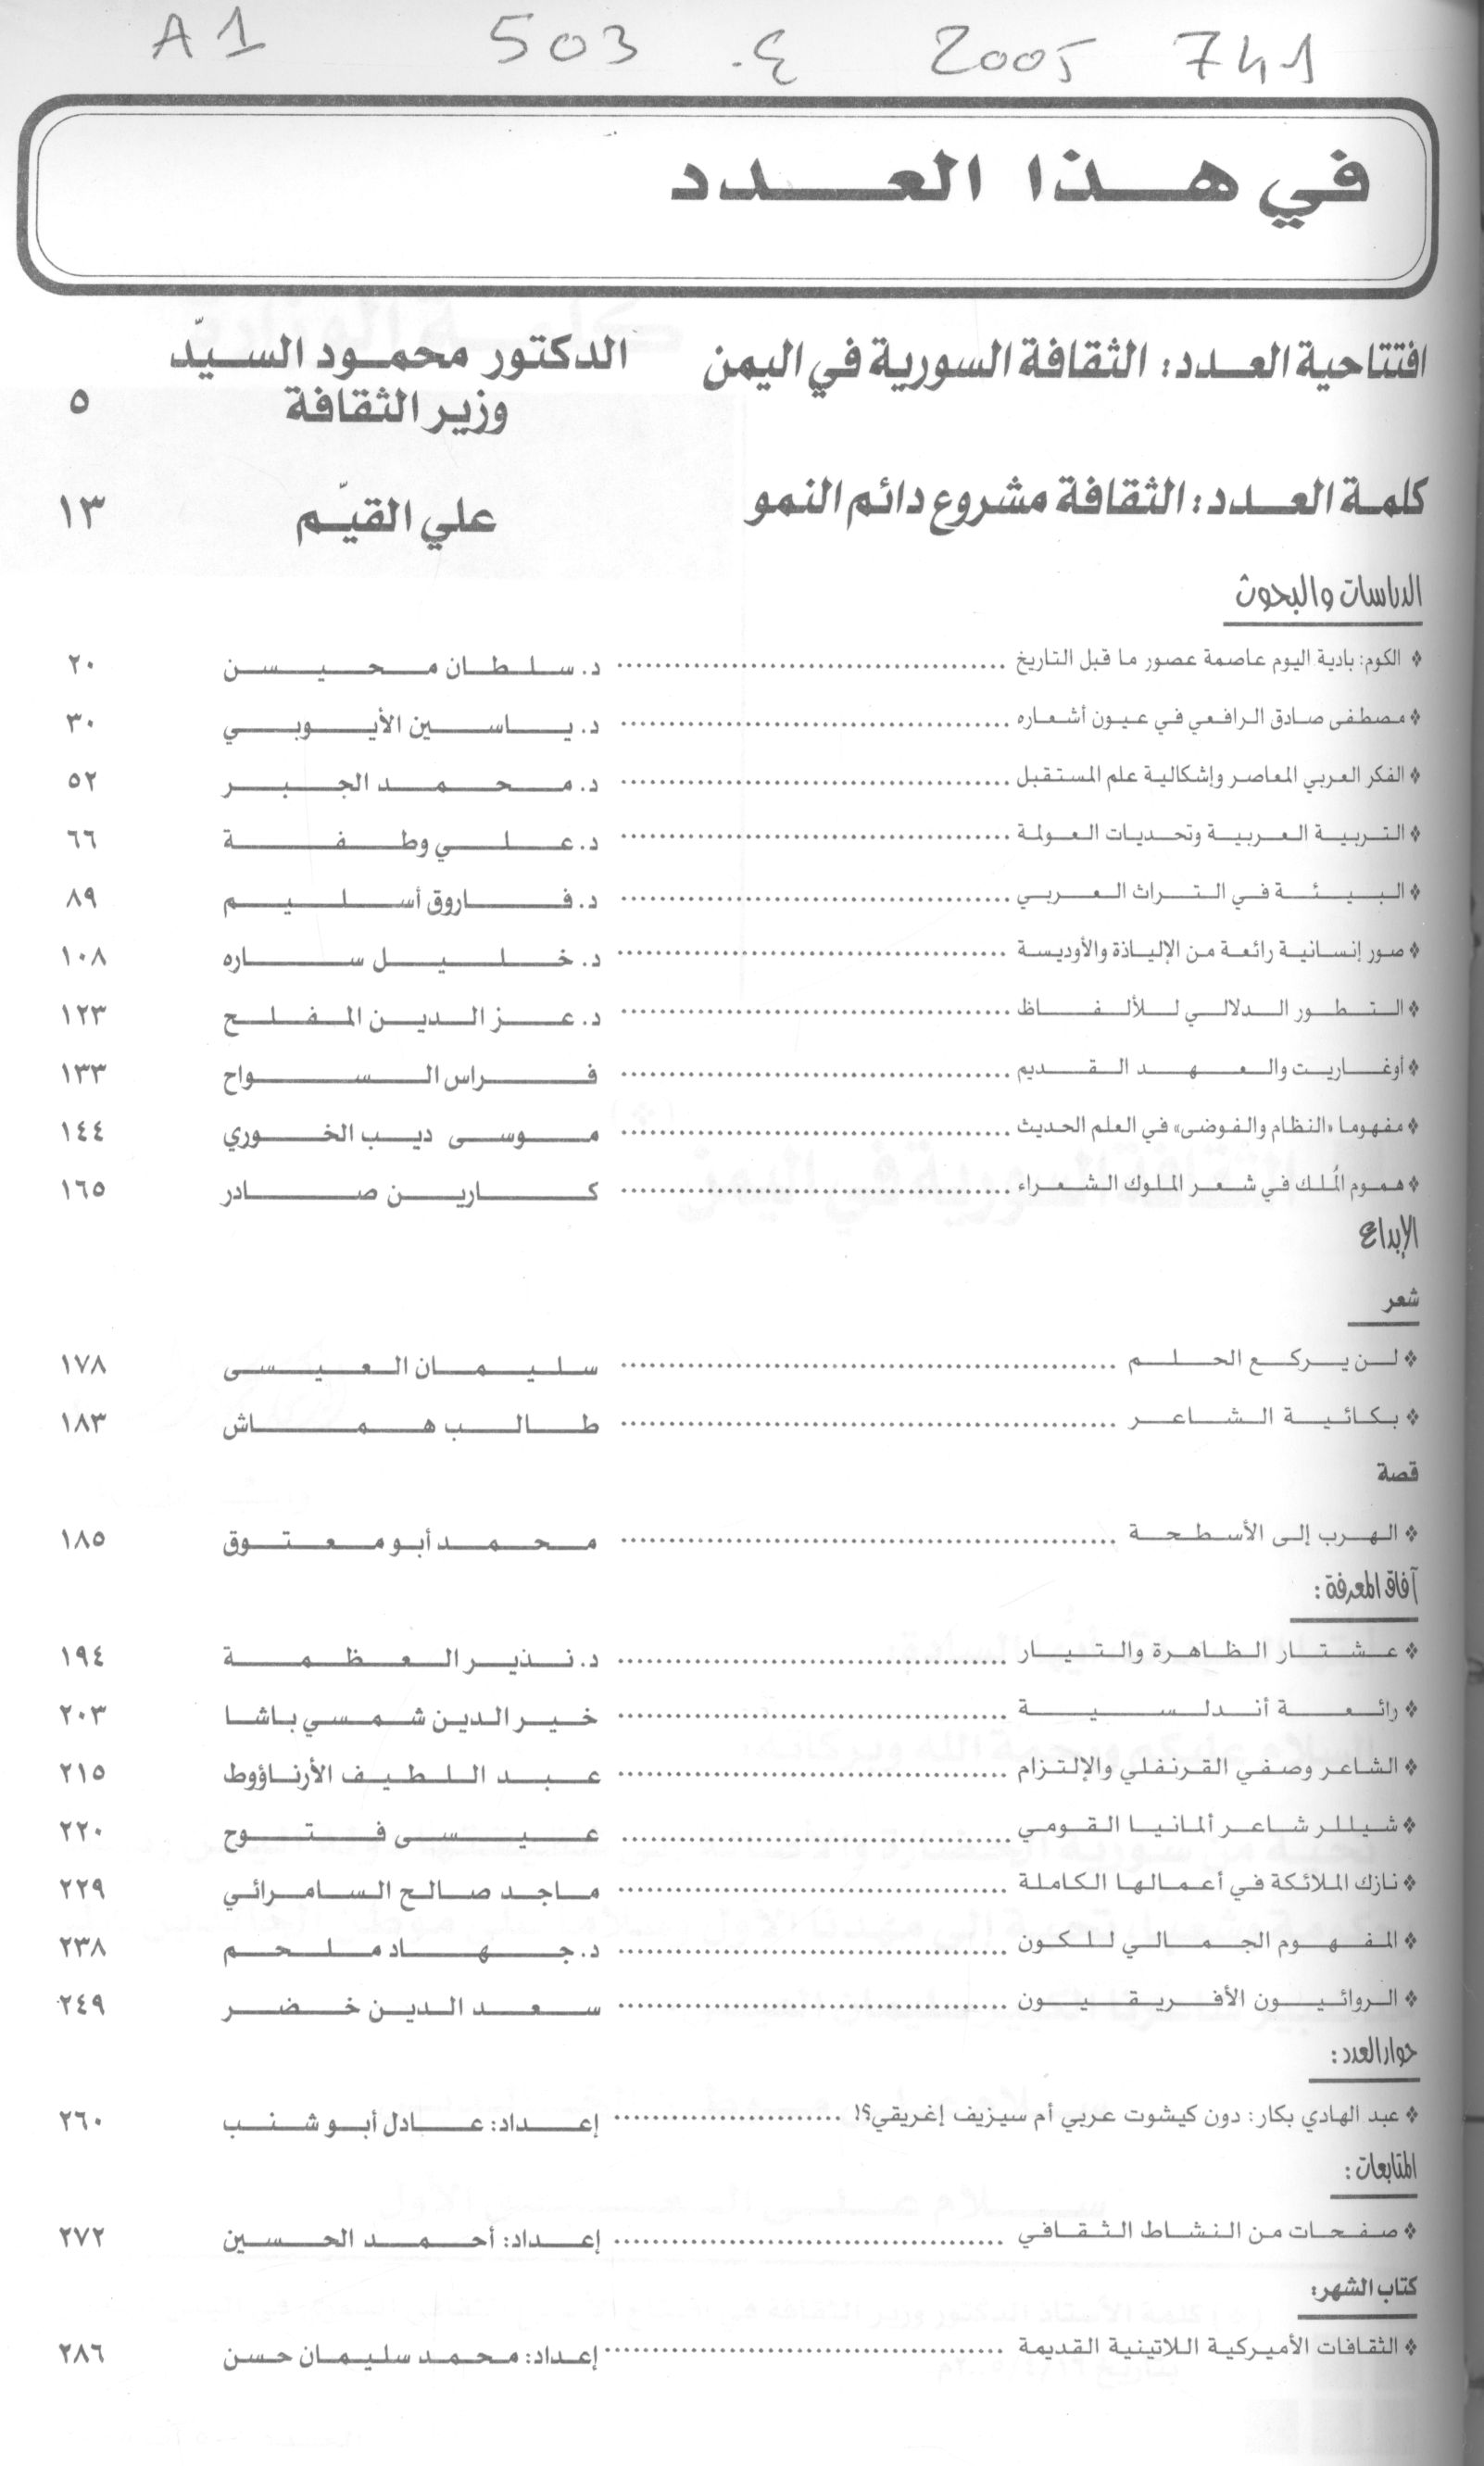 A1 503 .ع 2005 741
في هذا العدد
افتتاحية العدد: الثقافة السورية في اليمن الدكتور محمود السيّد
وزير الثقافة ٥
كلمة العدد: الثقافة مشروع دائم النمو علي القيّم ١٣
الدراسات والبحوث
❖ الكوم: بادية اليوم عاصمة عصور ما قبل التاريخ د. سلطان محيسن ٢٠
❖ مصطفى صادق الرافعي في عيون أشعاره د. ياسين الأيوبي ٣٠
❖ الفكر العربي المعاصر وإشكالية علم المستقبل د. محمد الجبر ٥٢
❖ التربية العربية وتحديات العولمة د. علي وطفة ٦٦
❖ البيئة في التراث العربي د. فاروق أسليم ٨٩
❖ صور إنسانية رائعة من الإلياذة والأوديسة د. خليل ساره ١٠٨
❖ التطور الدلالي للألفاظ د. عز الدين المفلح ١٢٣
❖ أوغاريت والعهد القديم فراس السواح ١٣٣
❖ مفهوما «النظام والفوضى» في العلم الحديث موسى ديب الخوري ١٤٤
❖ هموم المُلك في شعر الملوك الشعراء كارين صادر ١٦٥
الإبداع
شعر
❖ لن يركع الحلم سليمان العيسى ١٧٨
❖ بكائية الشاعر طالب هماش ١٨٣
قصة
❖ الهرب إلى الأسطحة محمد أبو معتوق ١٨٥
آفاق المعرفة:
❖ عشتار الظاهرة والتيار د. نذير العظمة ١٩٤
❖ رائعة أندلسية خير الدين شمسي باشا ٢٠٣
❖ الشاعر وصفي القرنفلي والإلتزام عبد اللطيف الأرناؤوط ٢١٥
❖ شيللر شاعر ألمانيا القومي عيسى فتوح ٢٢٠
❖ نازك الملائكة في أعمالها الكاملة ماجد صالح السامرائي ٢٢٩
❖ المفهوم الجمالي للكون د. جهاد ملحم ٢٣٨
❖ الروائيون الأفريقيون سعد الدين خضر ٢٤٩
حوار العدد:
❖ عبد الهادي بكار: دون كيشوت عربي أم سيزيف إغريقي؟! إعداد: عادل أبو شنب ٢٦٠
المتابعات:
❖ صفحات من النشاط الثقافي إعداد: أحمد الحسين ٢٧٢
كتاب الشهر:
❖ الثقافات الأميركية اللاتينية القديمة إعداد: محمد سليمان حسن ٢٨٦